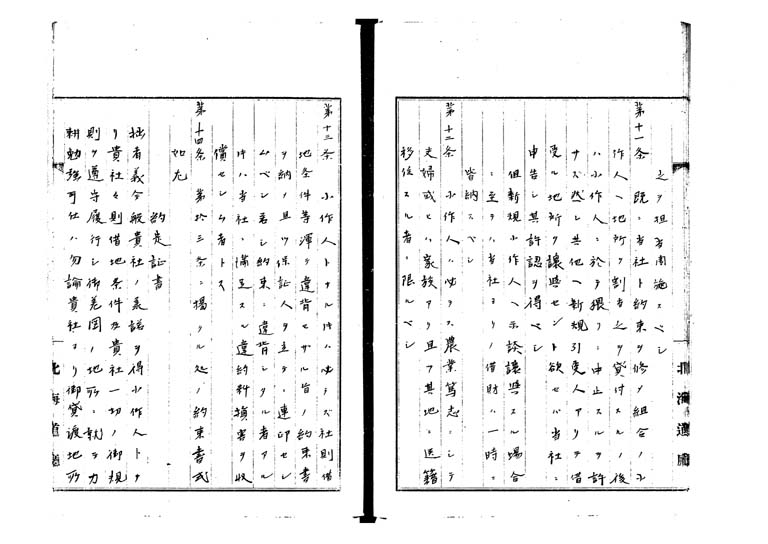 之ヲ担当周施スベシ
第十一条 既ニ当社ト約束ヲ修メ組合ノ小
作人ヘ地所ヲ割当之ヲ貸付スルノ後
ハ小作人ニ於テ猥リニ申止スルヲ許
サズ然シ其他ヘ新規引受人アリテ借
受ル地所ヲ譲与セント欲セバ当社ニ
申告シ其許認ヲ得ベシ
但新規小作人ヘ示談譲与スル場合
ニ至テハ当社ヨリノ借財ハ一時ニ
皆納スベシ
第十二条 小作人ハ必ラズ農業篤志ニシテ
夫婦或ヒハ家族アリ且ツ其地ニ送籍
移住スル者ニ限ルベシ
第十三条 小作人トナル時ハ必ラズ社則借
地条件等渾テ違背セザル旨ノ約束書
ヲ納メ且ツ保証人ヲ立テ連印セシ
ムベシ若シ約束ニ違背シタル者アル
時ハ当社ニ満足スル違約料損害ヲ収
償セシム者トス
第十四条 第拾三条ニ掲クル処ノ約束書式
如左
約定証書
拙者義今般貴社ノ承諾ヲ得小作人トナ
リ貴社々則借地条件及貴社一切ノ御規
則ヲ遵守履行シ御差図ノ地所ニ就テ力
耕勉強可仕ハ勿論貴社ヨリ御貸渡地所
北海道庁